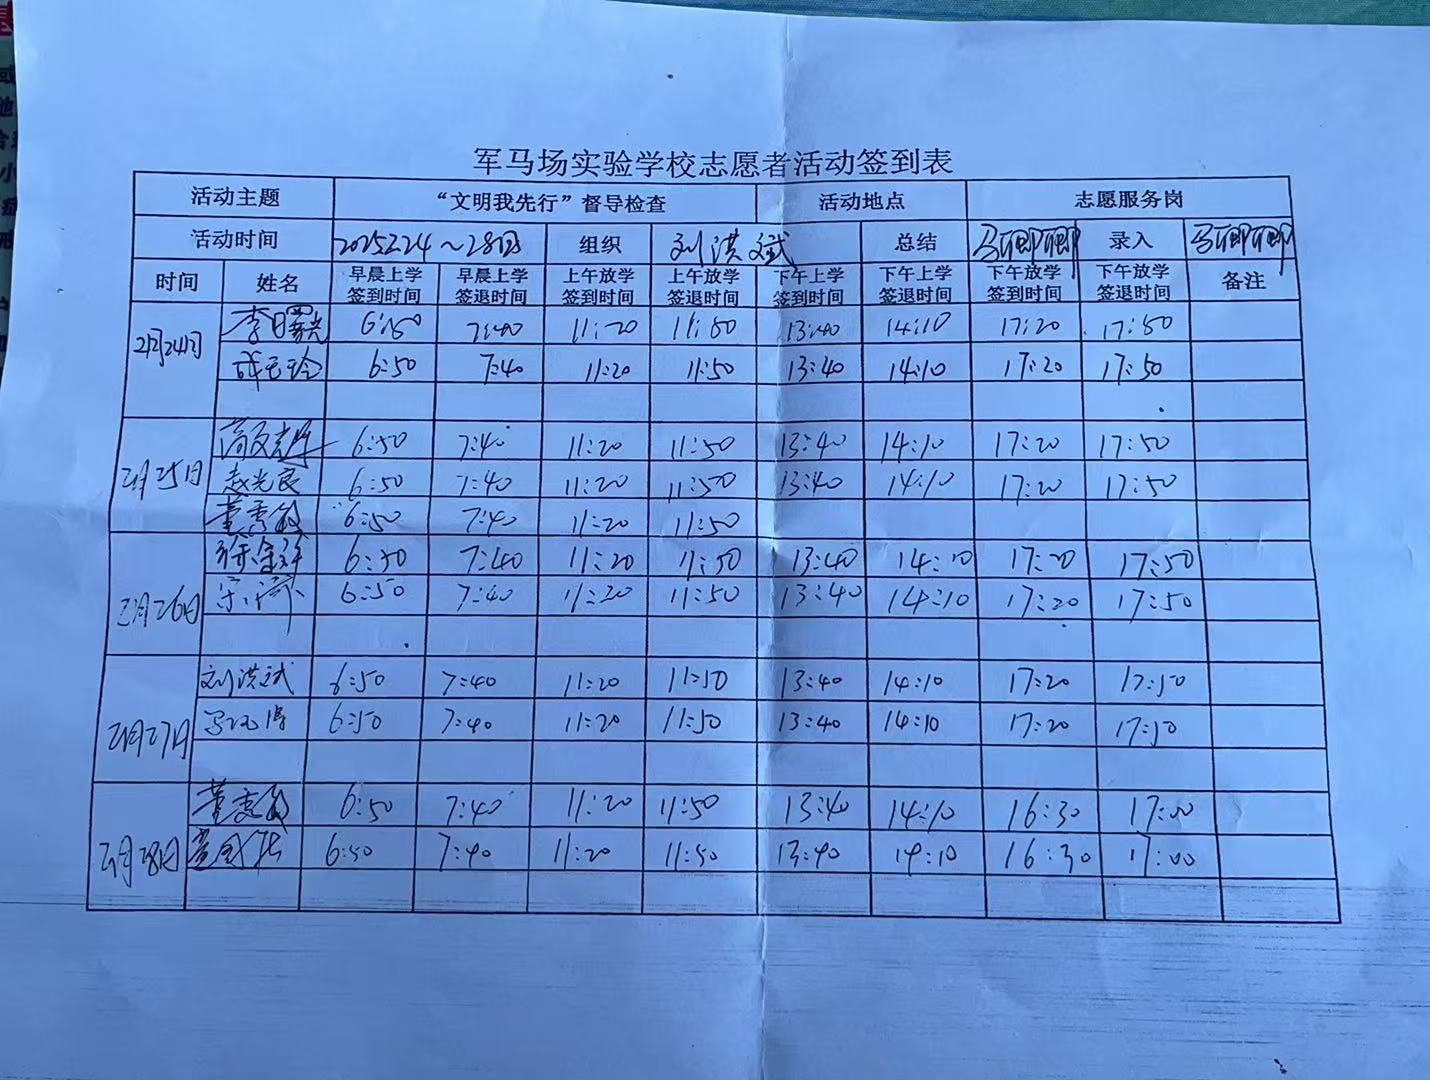 军马场实验学校志愿者活动签到表
活动主题 “文明我先行”督导检查 活动地点 志愿服务岗
活动时间 2025.2.24~28日 组织 刘洪斌 总结 录入
时间 姓名 早晨上学签到时间 早晨上学签退时间 上午放学签到时间 上午放学签退时间 下午上学签到时间 下午上学签退时间 下午放学签到时间 下午放学签退时间 备注
2月24日 李曙光 6:50 7:40 11:20 11:50 13:40 14:10 17:20 17:50
6:50 7:40 11:20 11:50 13:40 14:10 17:20 17:50
2月25日 6:50 7:40 11:20 11:50 13:40 14:10 17:20 17:50
赵光良 6:50 7:40 11:20 11:50 13:40 14:10 17:20 17:50
董秀敏 6:50 7:40 11:20 11:50
2月26日 6:50 7:40 11:20 11:50 13:40 14:10 17:20 17:50
6:50 7:40 11:20 11:50 13:40 14:10 17:20 17:50
2月27日 刘洪斌 6:50 7:40 11:20 11:50 13:40 14:10 17:20 17:50
6:50 7:40 11:20 11:50 13:40 14:10 17:20 17:50
2月28日 6:50 7:40 11:20 11:50 13:40 14:10 16:30 17:00
6:50 7:40 11:20 11:50 13:40 14:10 16:30 17:00